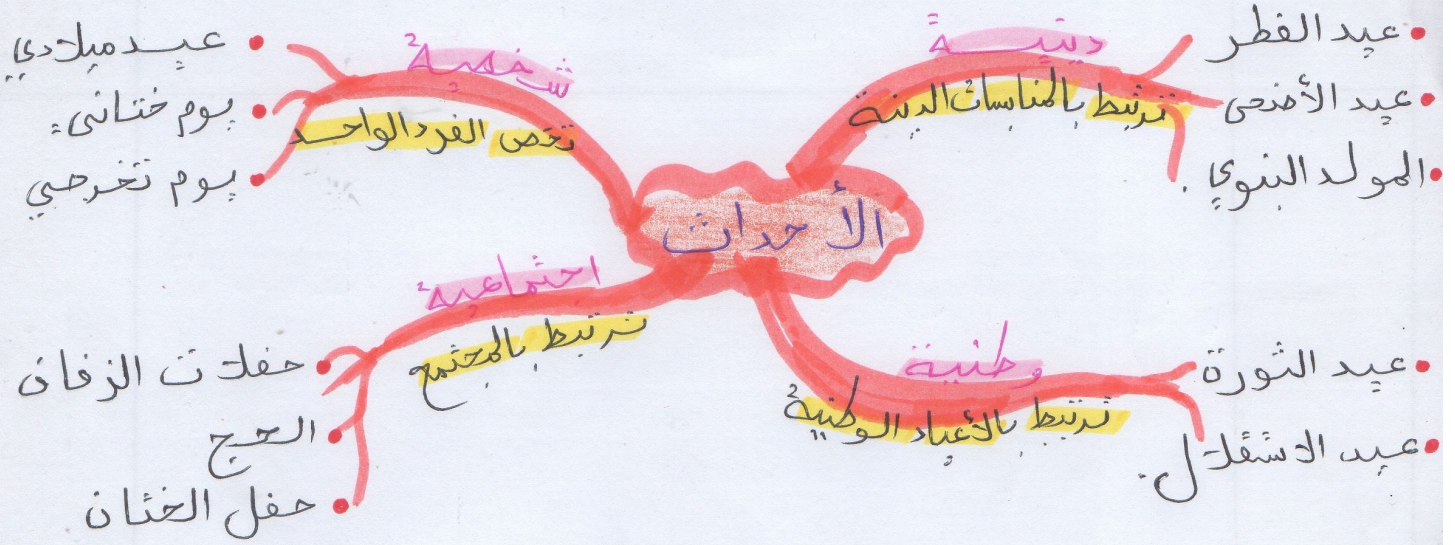 الأحداث
دينية
ترتبط بالمناسبات الدينية
عيد الفطر
عيد الأضحى
المولد النبوي.
وطنية
ترتبط بالأعياد الوطنية
عيد الثورة
عيد الاستقلال.
شخصية
تخص الفرد الواحد
عيد ميلادي
يوم ختاني
يوم تخرجي
اجتماعية
ترتبط بالمجتمع
حفلات الزفاف
الحج
حفل الختان